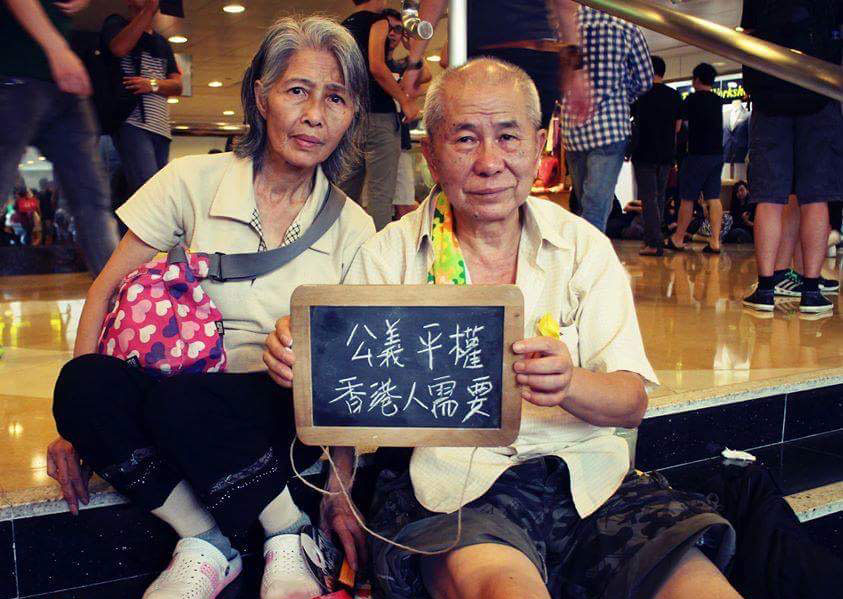 公義平權
香港人需要